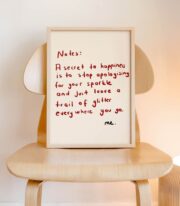 Notes:
A secret to happiness
is to stop apologizing
for your sparkle
and just leave a
trail of glitter
everywhere you go.
me.